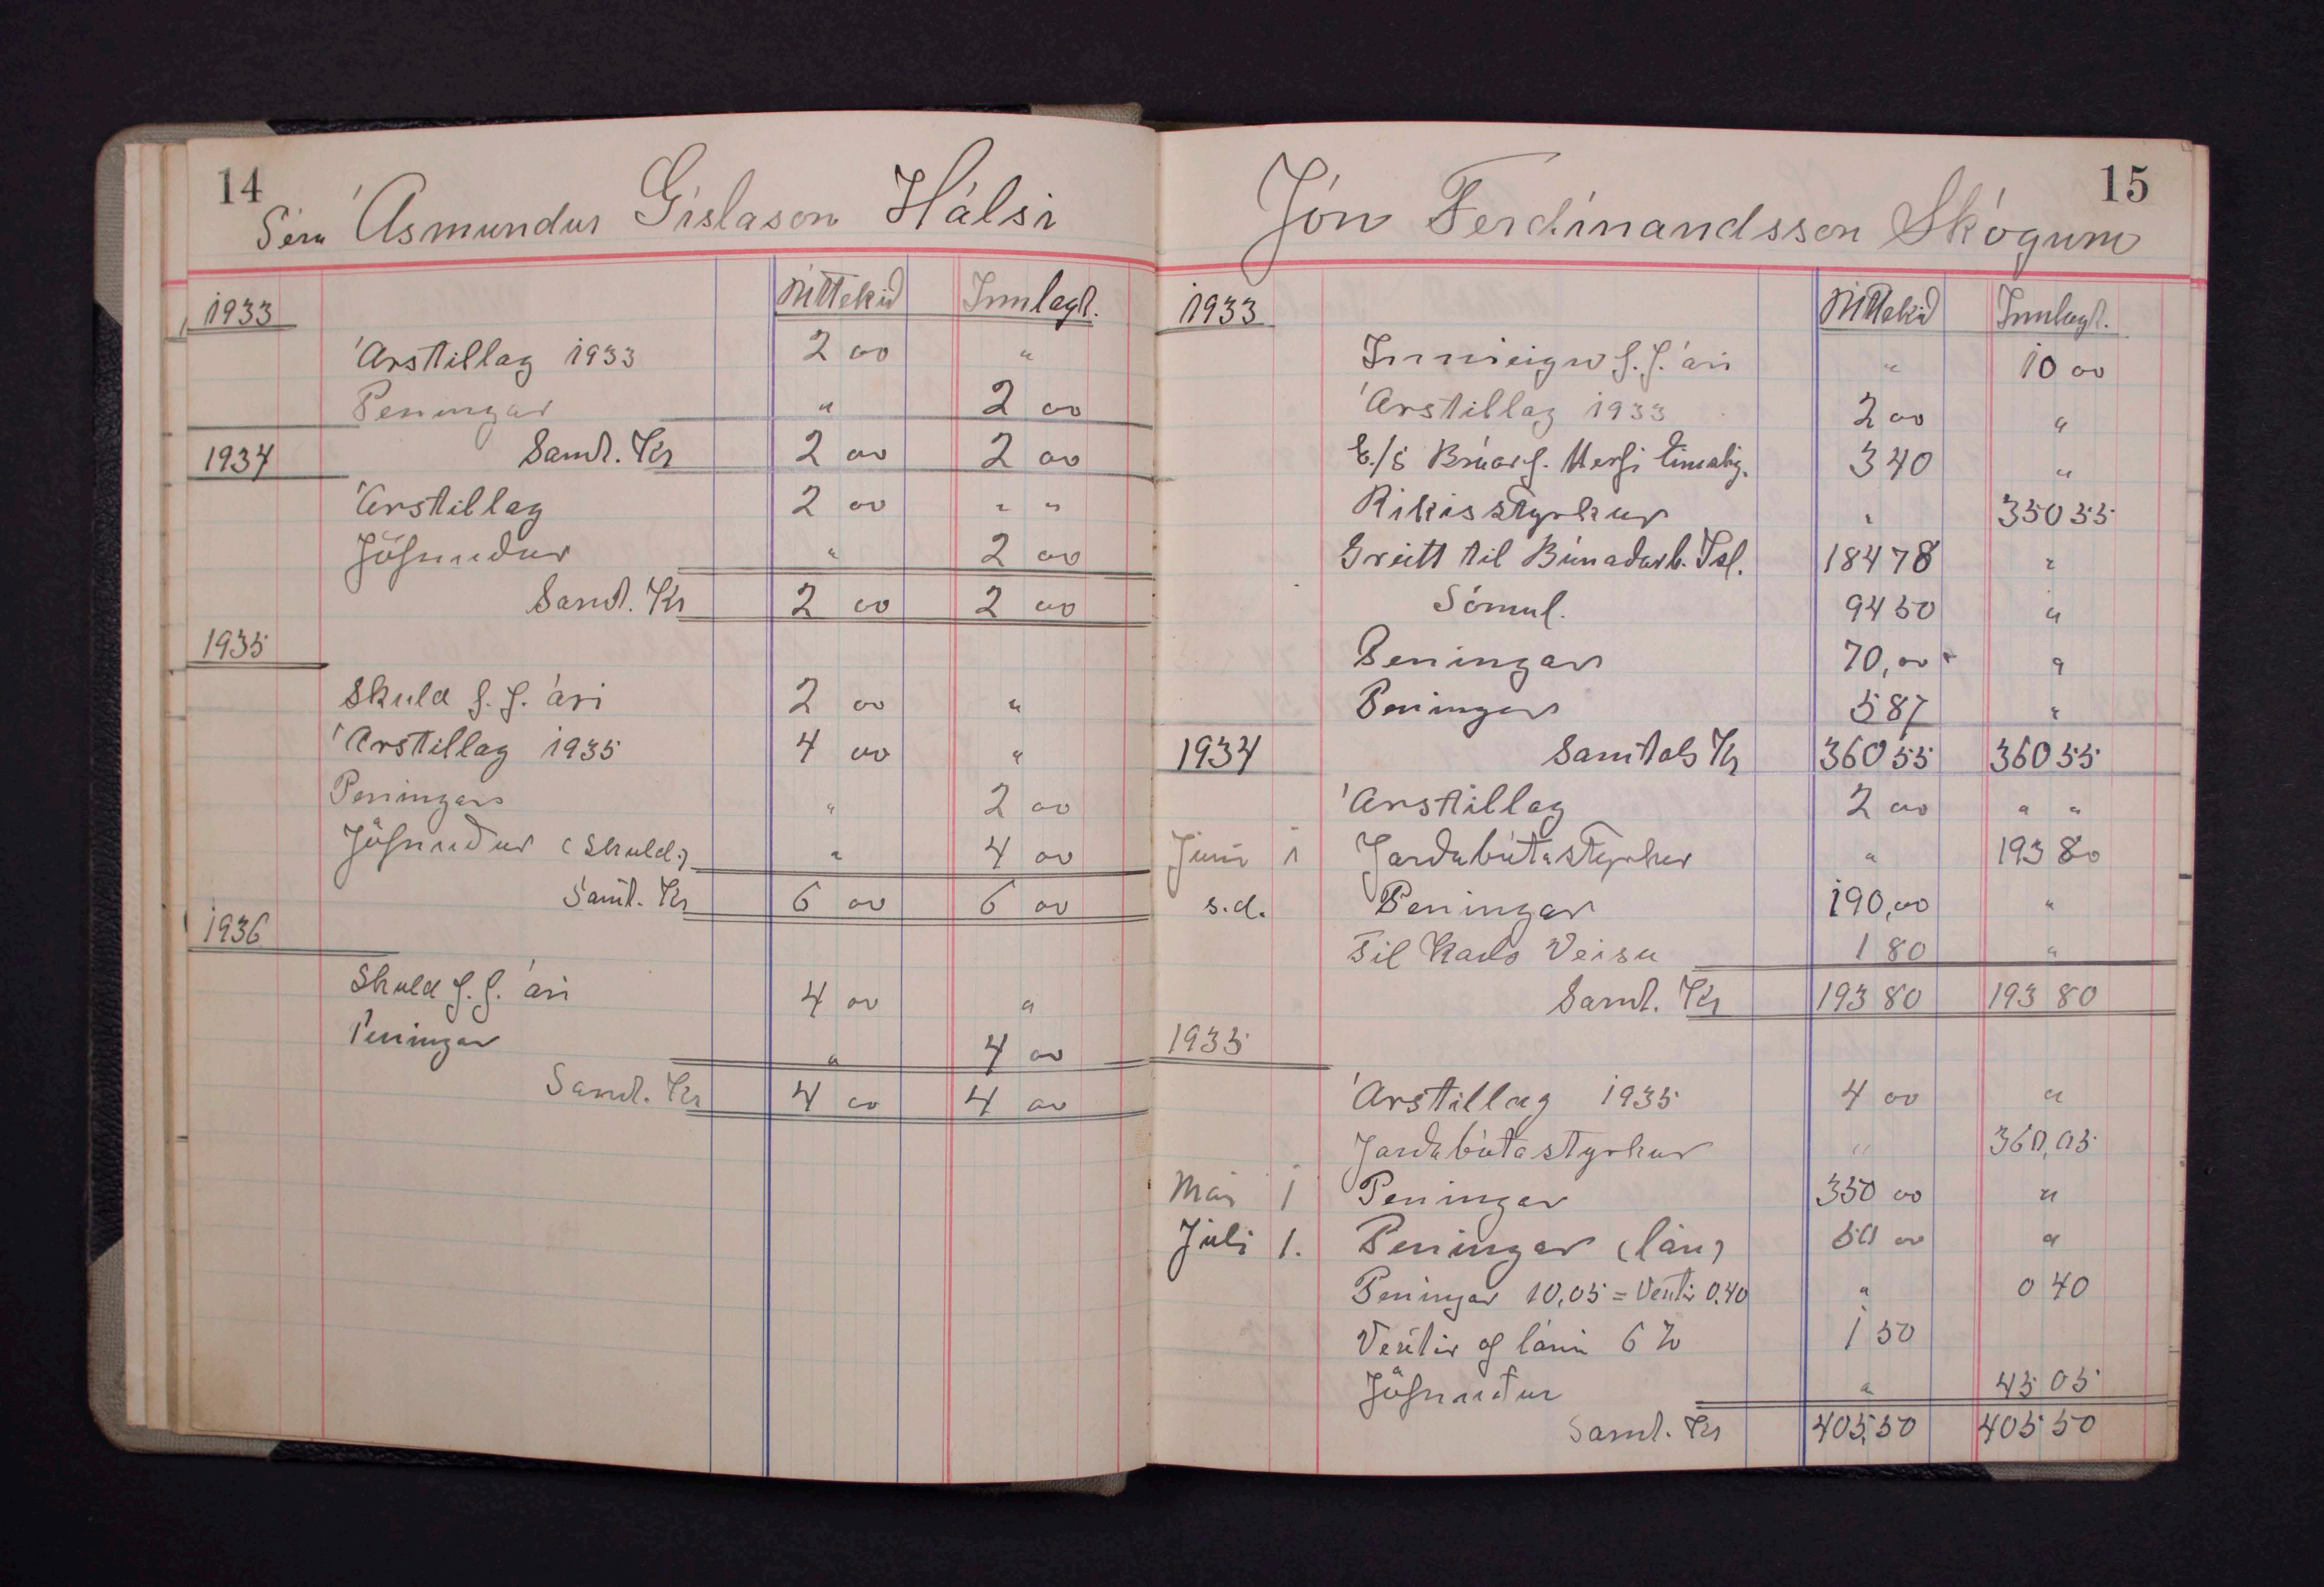 14
Séra Ásmundur Gíslason Hálsi
1933 Úttekið Innlagt.
Árstillag 1933 2 00 "
Peningar " 2 00
1934 Samt. Kr 2 00 2 00
Árstillag 2 00 " "
Jöfnuður " 2 00
Samt. Kr 2 00 2 00
1935
Skuld f. f. ári 2 00 "
Árstillag 1935 4 00 "
Peningar " 2 00
Jöfnuður (Skuld) " 4 00
Samt. Kr 6 00 6 00
1936
Skuld f. f. ári 4 00 "
Peningar " 4 00
Samt. Kr 4 00 4 00
15
Jón Ferdínandsson Skógum
1933 Úttekið Innlagt.
Innieign f. f. ári " 10 00
Árstillag 1933 2 00 "
E./S Brúarf. 3 40 "
Ríkisstyrkur " 350 55
Greitt til Búnaðarb. Ísl. 184 78 "
Sömul. 94 50 "
Peningar 70,00 "
Peningar 5 87 "
1934 Samtals Kr 360 55 360 55
Árstillag 2 00 " "
Júní 1 Jarðabótastyrkur " 193 80
s.d. Peningar 190,00 "
Til Karls Veisu 1 80 "
Samt. Kr 193 80 193 80
1935
Árstillag 1935 4 00 "
Jarðabótastyrkur " 360,05
Maí 1 Peningar 350 00 "
Júlí 1. Peningar (lán) 50 00 "
Peningar 10,05 = Vextir 0,40 " 0 40
Vextir af láni 6 % 1 50
Jöfnuður " 45 05
Samt. Kr 405,50 405 50